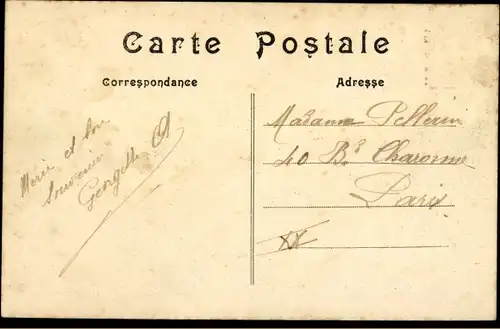 Carte Postale
Correspondance
Adresse
Merci et bon
Souvenir
Georgette
Madame Pellerin
40 Bd Charonne
Paris
XX